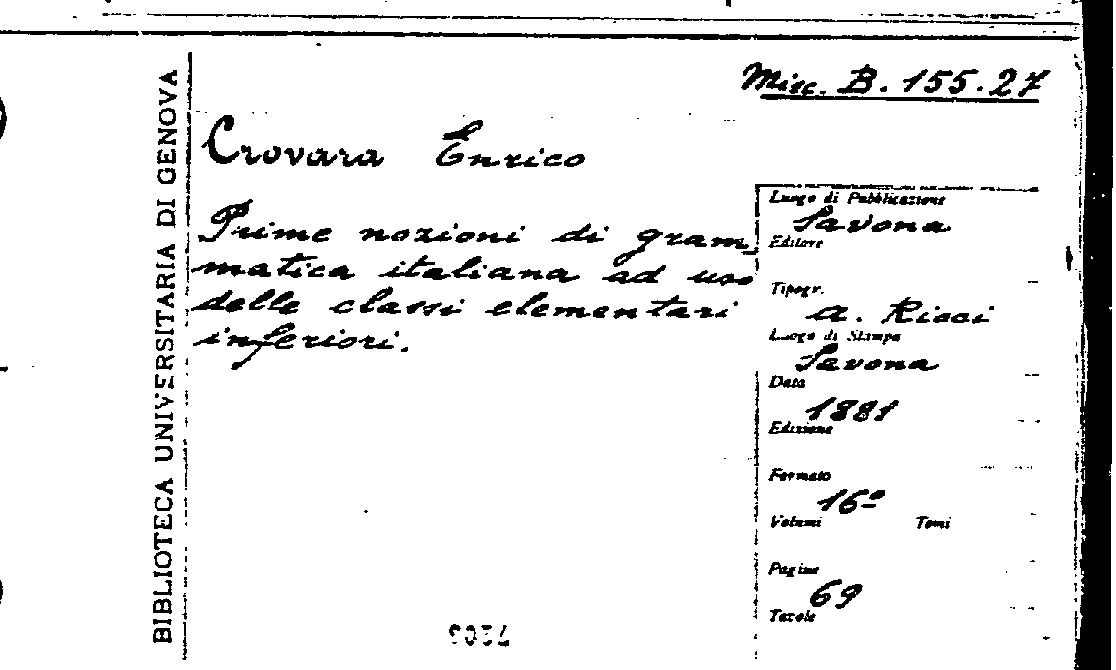 Misc. B. 155.27
BIBLIOTECA UNIVERSITARIA DI GENOVA
Crovara Enrico
Prime nozioni di gram_
matica italiana ad uso
delle classi elementari
inferiori.
Luogo di Pubblicazione
Savona
Editore
Tipogr.
A. Ricci
Luogo di Stampa
Savona
Data
1881
Edizione
Formato
16º
Volumi Tomi
Pagine
69
Tavole